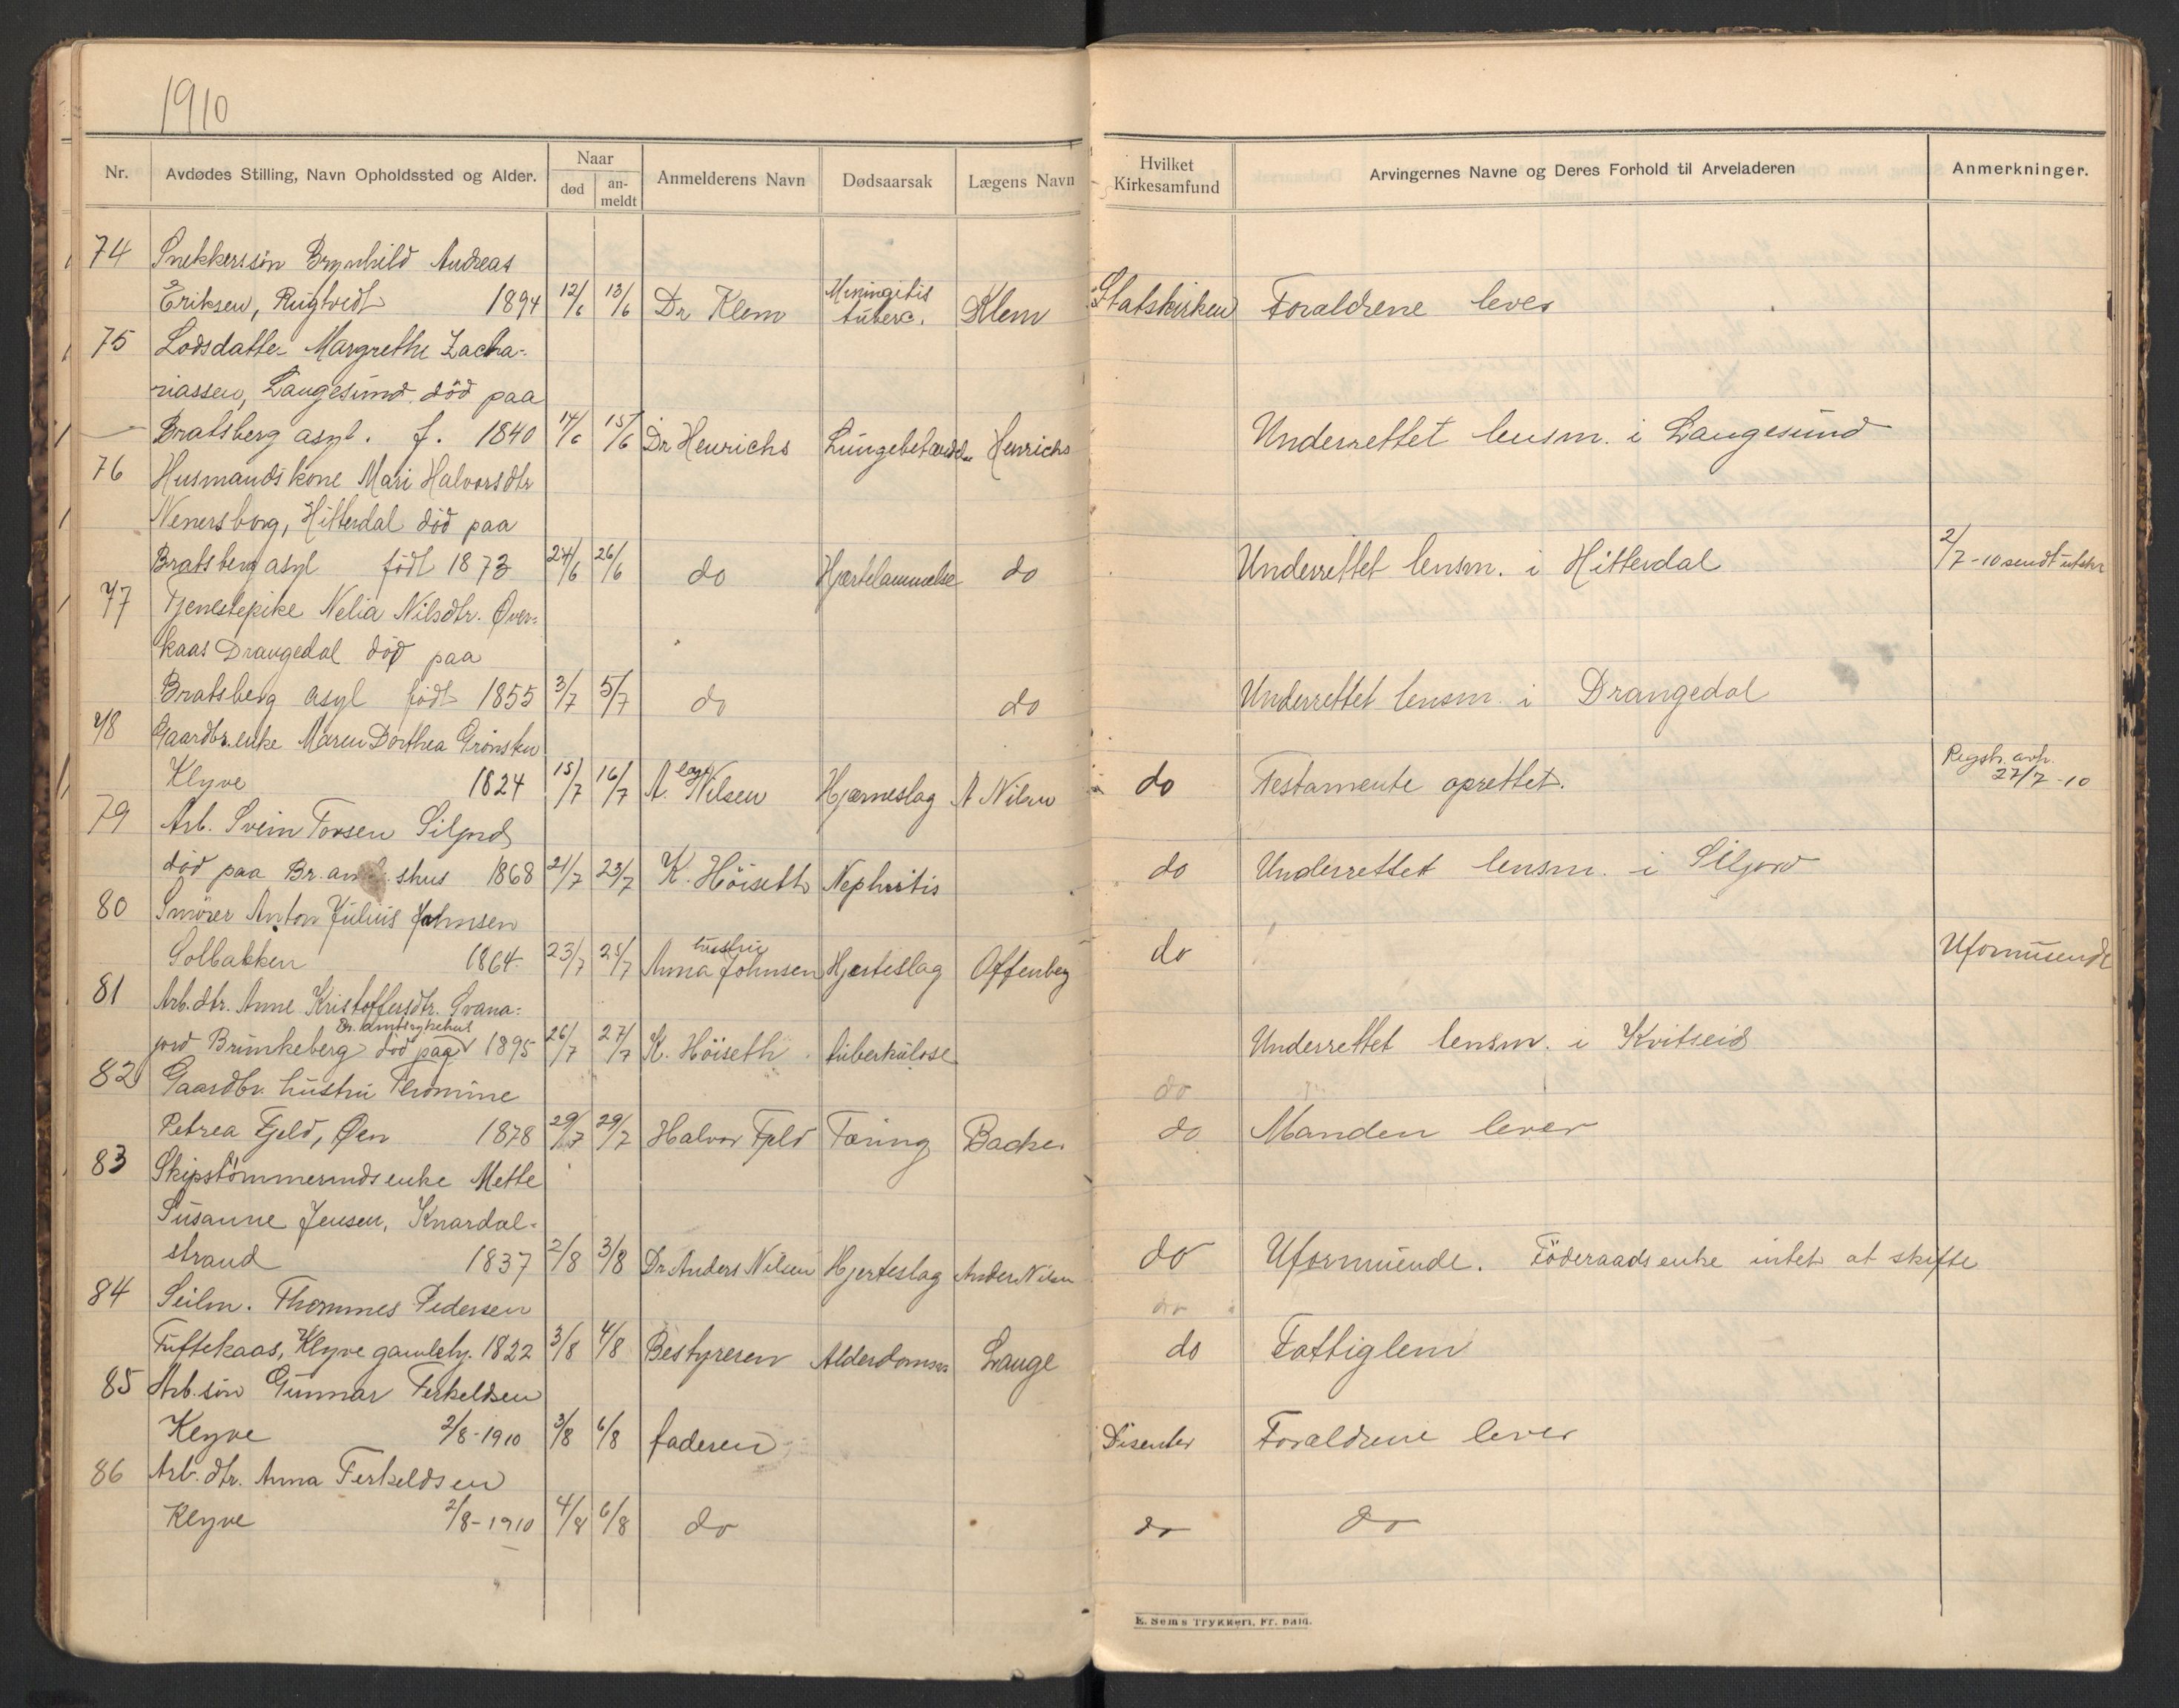 1910
Nr. Avdødes Stilling, Navn Opholdssted og Alder. Naar død an-meldt Anmelderens Navn Dødsaarsak Lægens Navn Hvilket Kirkesamfund Arvingernes Navne og Deres Forhold til Arveladeren Anmerkninger.
74 Snekkerssøn Brynhild Andreas
Eriksen, Rugtvedt 1894 12/6 13/6 Dr Klem Meningitis tuberc. Klem Statskirken Foraldrene lever
75 Lodsdatter Margrethe Zacha-
riassen, Langesund død paa
Bratsberg asyl. f. 1840 14/6 15/6 Dr Henrichs Lungebetændel. Henrichs Underrettet lensm. i Langesund
76 Husmandskone Mari Halvorsdtr
Nenersborg, Hitterdal død paa
Bratsberg asyl født 1873 24/6 26/6 do Hjertelammelse do Underrettet lensm. i Hitterdal 2/7-10 sendt utskr
77 Tjenestepike Nelia Nilsdtr. Øver-
kaas Drangedal død paa
Bratsberg asyl født 1855 3/7 5/7 do do Underrettet lensm. i Drangedal
78 Gaardbr.enke Maren Dorthea Grønsten
Klyve 1824 15/7 16/7 A. Nilsen Hjerneslag A Nilsen do Testamente oprettet. Regstr. avh. 27/7-10
79 Arb. Svein Torsen Siljord
død paa Br. shus 1868 21/7 23/7 K. Høiseth Nephritis do Underrettet lensm. i Siljord
80 Smører Anton Julius Johnsen
Solbakken 1864 23/7 25/7 hustru Anna Johnsen Hjerteslag Offenberg do Uformuende
81 Arb.dtr. Anne Kristoffersdtr. Svana-
jord Brunkeberg død paa Br. amtssykehus 1895 26/7 27/7 K. Høiseth tuberkulose Underrettet lensm. i Kvitseid
82 Gaardbr. hustru Thomine do
Petrea Fjeld, Øen 1878 29/7 29/7 Halvor Fjeld Tæring Backer do Manden lever
83 Skipstømmermdsenke Mette
Susanne Jensen, Knardal-
strand 1837 2/8 3/8 Dr Anders Nilsen Hjerteslag Anders Nilsen do Uformuende. Føderaadsenke intet at skifte
84 Seilm. Thommes Pedersen do
Tuftekaas, Klyve gamlehj. 1822 3/8 4/8 Bestyreren Alderdomssv. Lange do Fattiglem
85 Arb.søn Gunnar Terkeldsen
Klyve 2/8-1910 3/8 6/8 faderen Disenter Foraldrene lever
86 Arb.dtr. Anna Terkeldsen
Klyve 2/8-1910 4/8 6/8 do do do
E. Sems Trykkeri, Fr. hald.